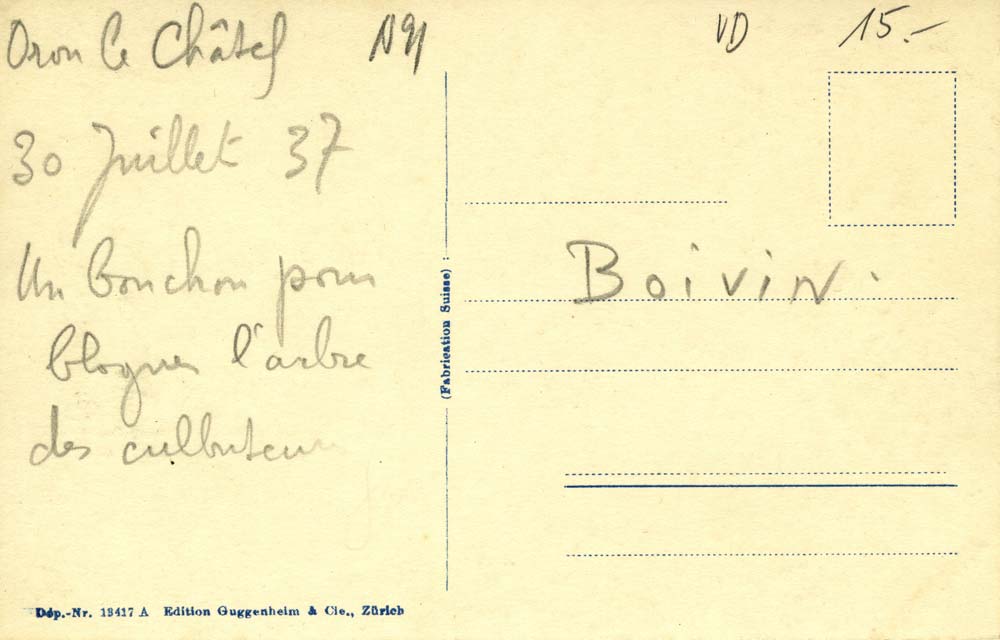 Oron le Châtel
N91
VD
15.-
30 Juillet 37
Un bouchon pour
bloquer l'arbre
des culbuteurs
Boivin.
(Fabrication Suisse)
Dép.-Nr. 13417 A Edition Guggenheim & Cie., Zürich